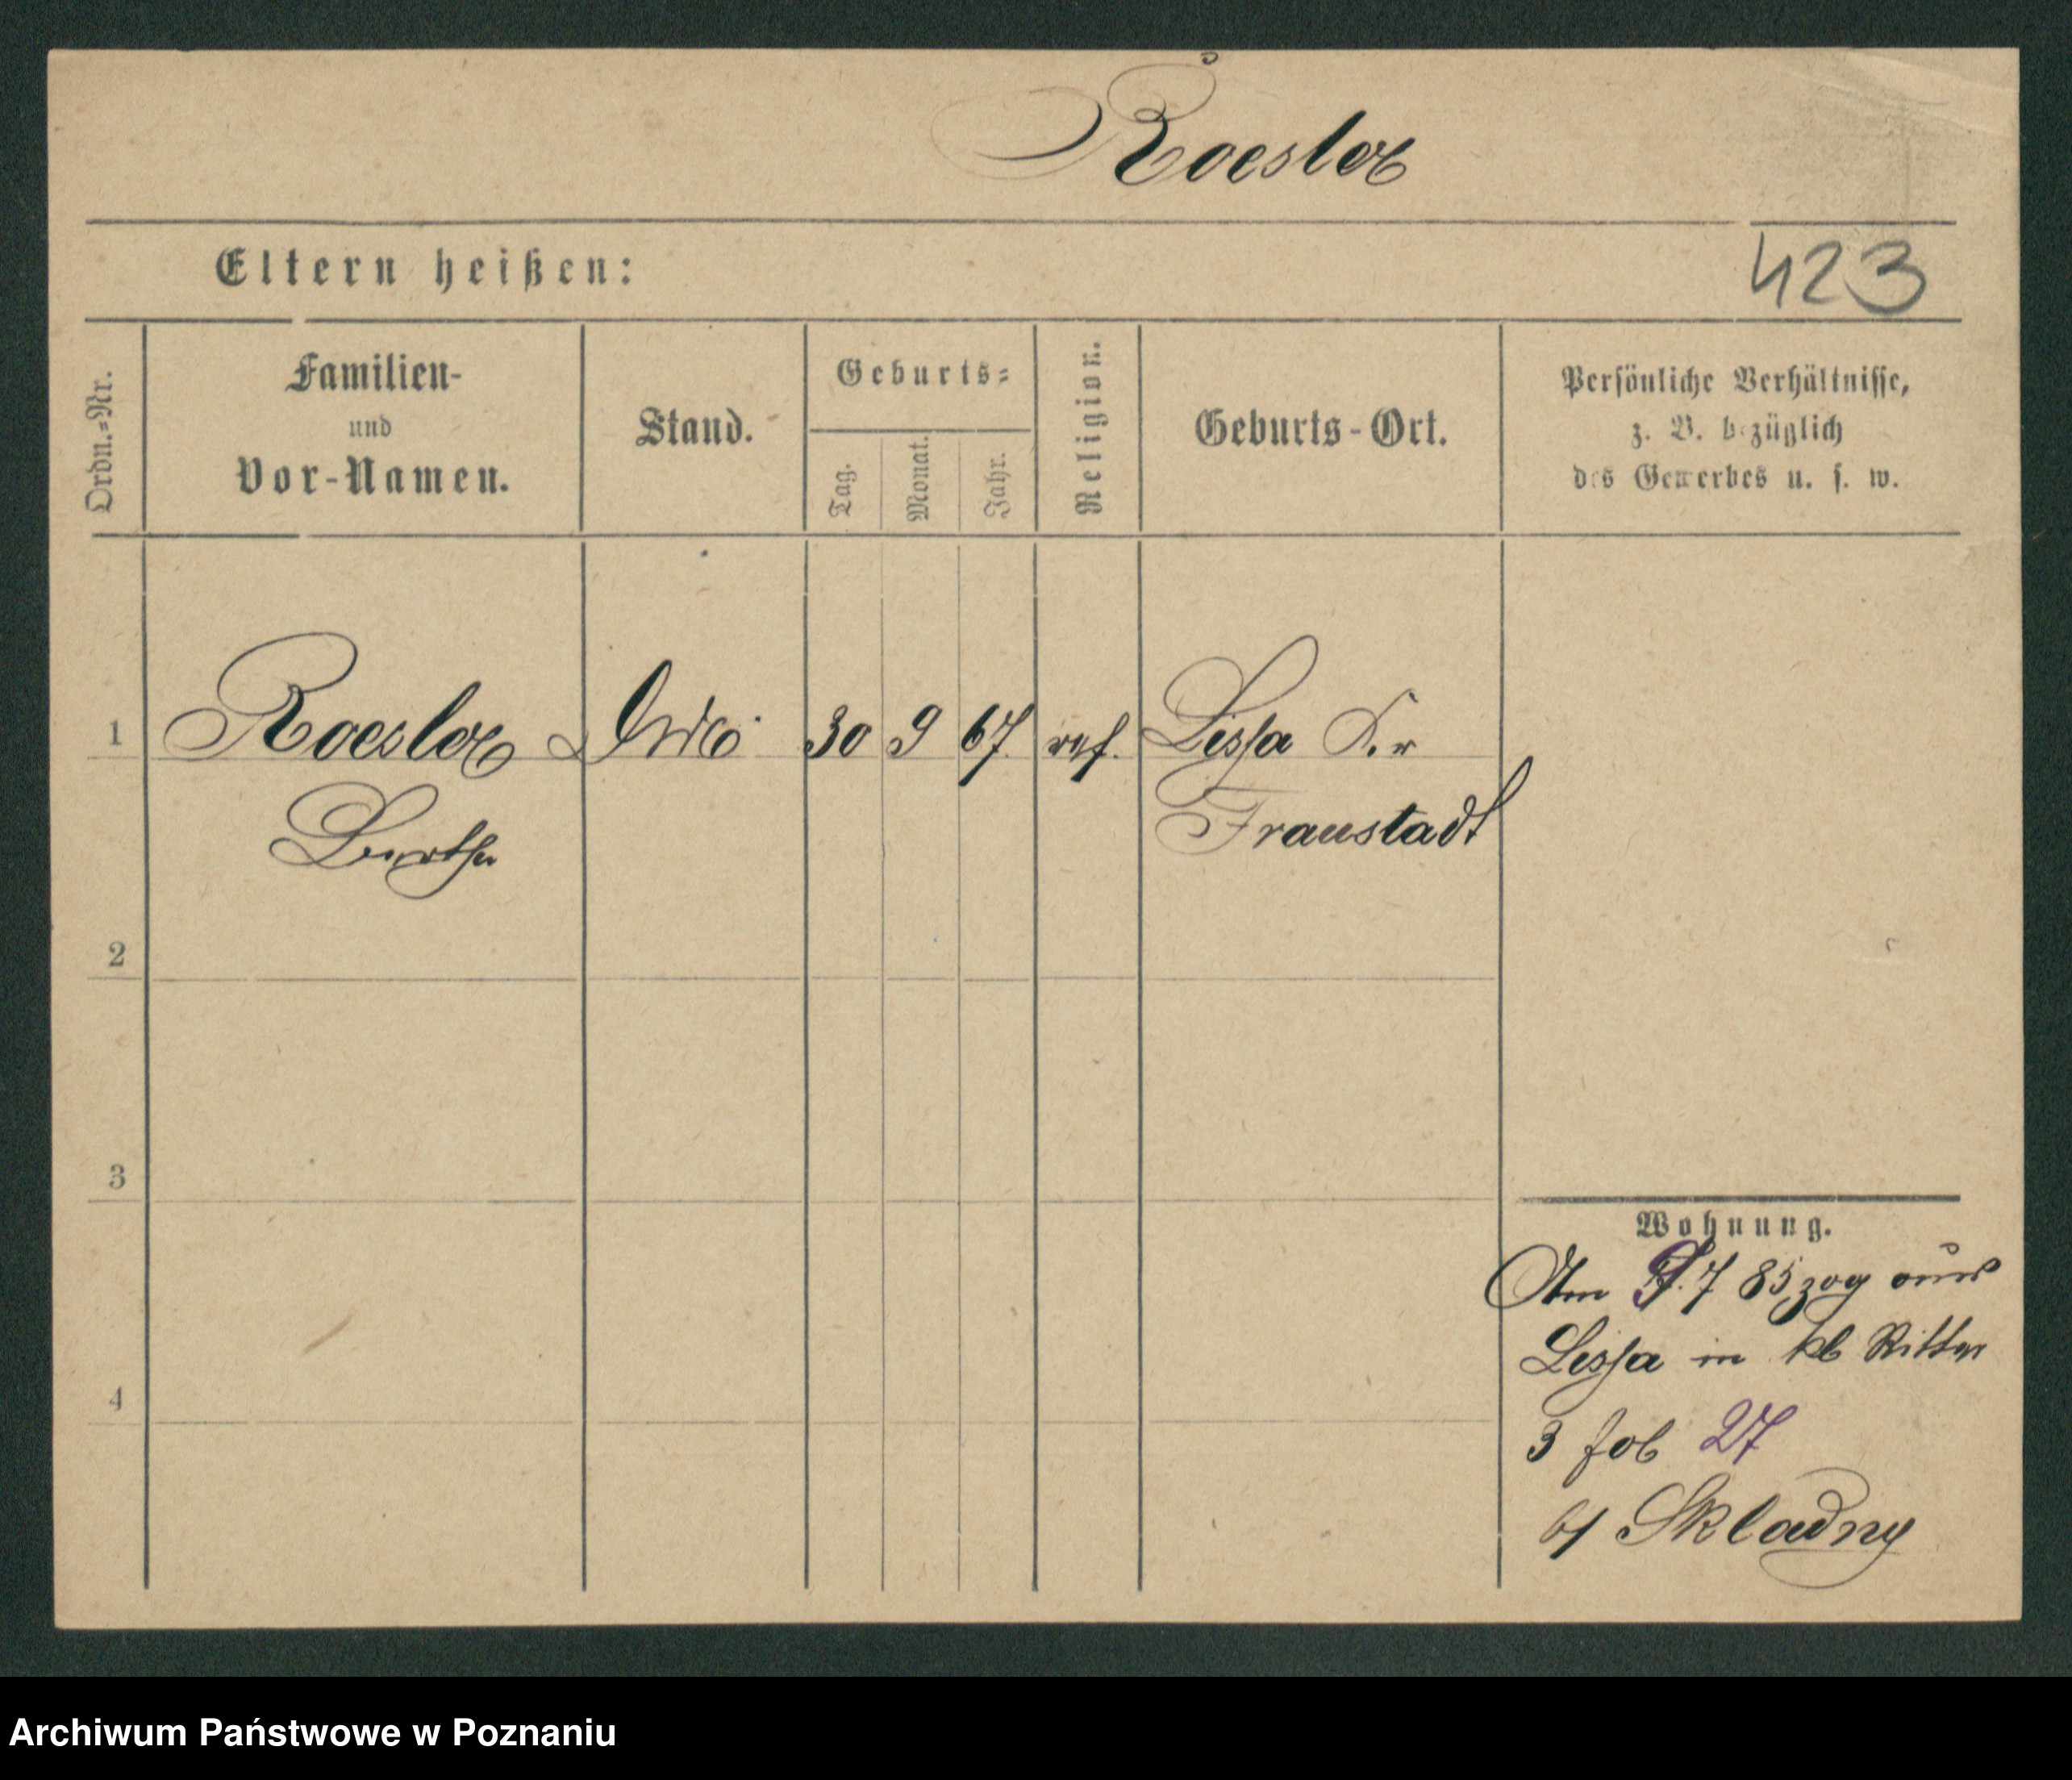 Roesler
Eltern heißen:
423
Ordn.=Nr.
Familien-
und
Vor-Namen.
Stand.
Geburts=
Tag.
Monat.
Jahr.
Religion.
Geburts-Ort.
Persönliche Verhältnisse,
z. B. bezüglich
des Gewerbes u. s. w.
1
Roesler
30 9 67. ref.
Lissa Kr
Bertha
Fraustadt
2
3
4
Wohnung.
Am 9.7 85 zog aus
Lissa in kl Ritter
3 fol 27
b/ Skladny
Archiwum Państwowe w Poznaniu